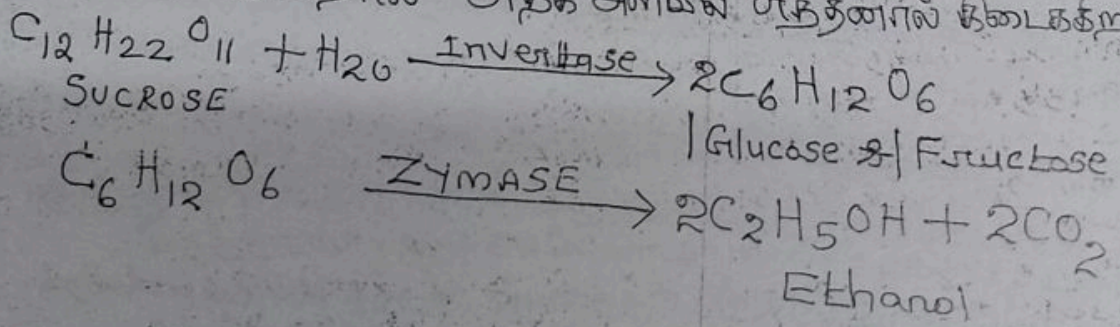 கிடைக்கிற
C12 H22 O11 + H2O Invertase → 2C6 H12 O6
SUCROSE
1 Glucose & 1 Fructose
C6 H12 O6 ZYMASE → 2C2H5OH + 2CO2
Ethanol